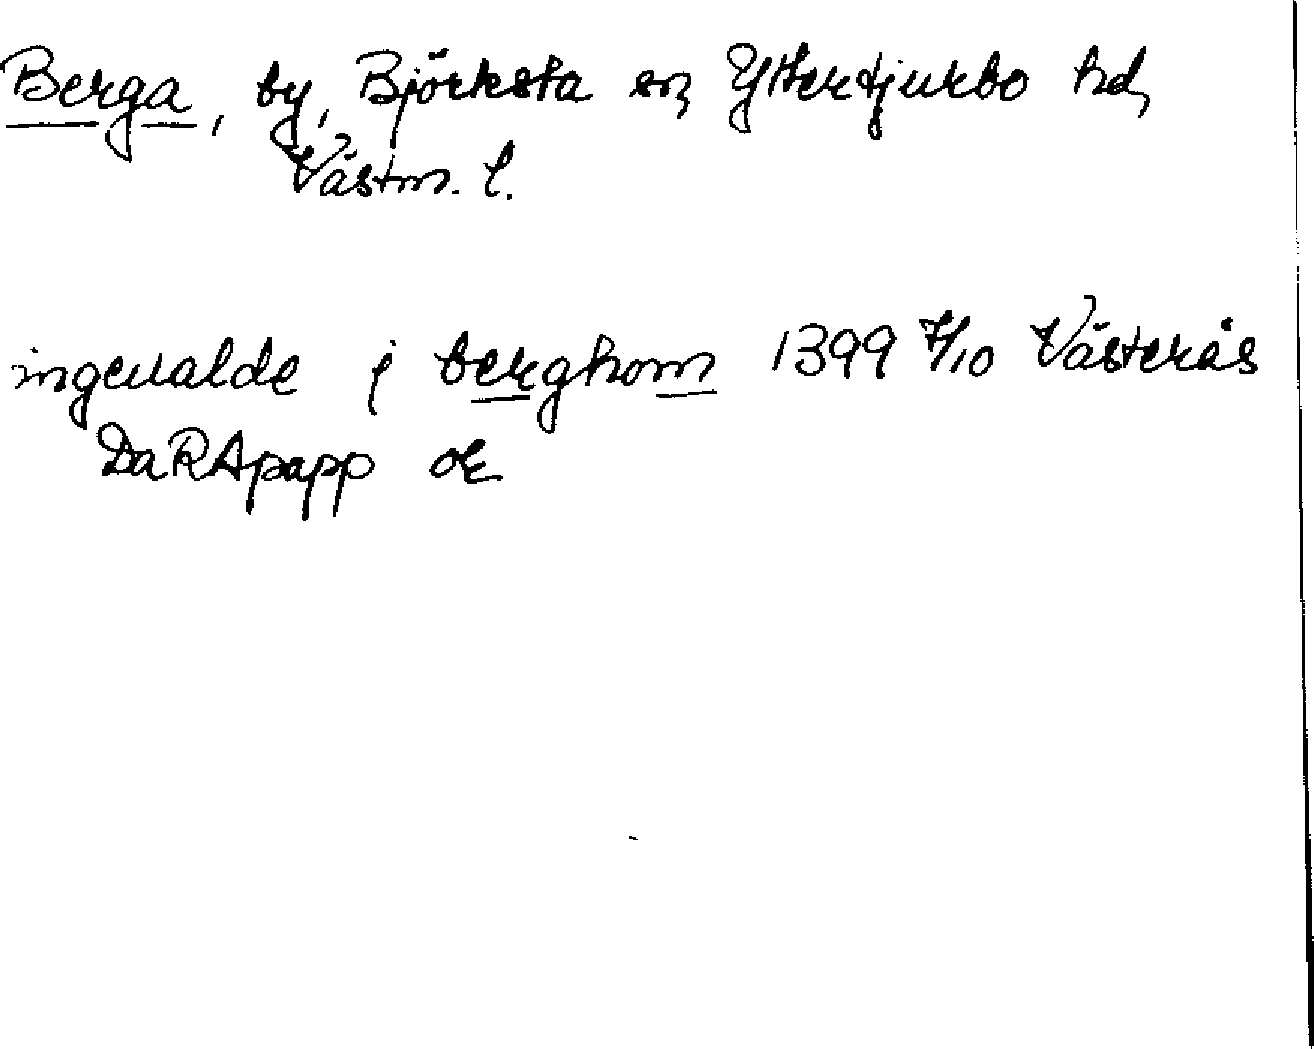 Berga, by, Björksta sn, Yttertjurbo hd,
Västm. l.
ingeualde j berghom 1399 7/10 Västerås
DaRApapp or